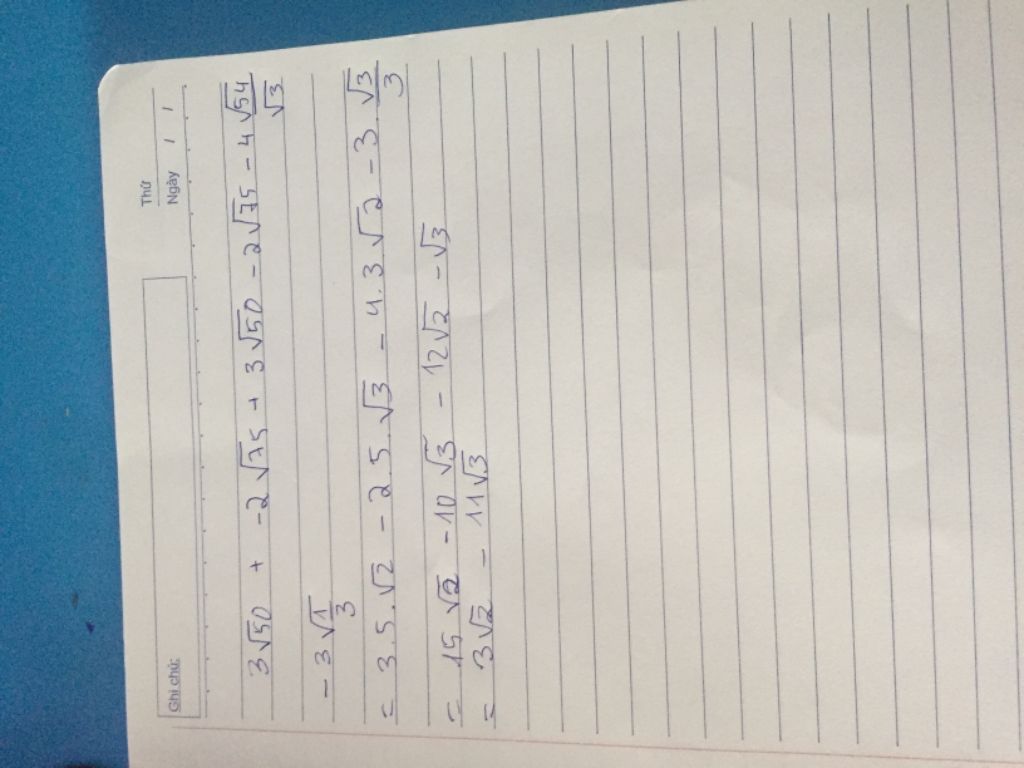 Ghi chú:
Thứ
Ngày / /
3√50 + -2√75 + 3√50 - 2√75 - 4 √54/√3
- 3 √1/3
= 3.5.√2 - 2 5.√3 - 4.3√2 - 3.√3/3
= 15√2 - 10√3 - 12√2 - √3
= 3√2 - 11√3